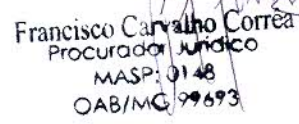 Francisco Carvalho Corrêa
Procurador Jurídico
MASP: 0148
OAB/MG 99693